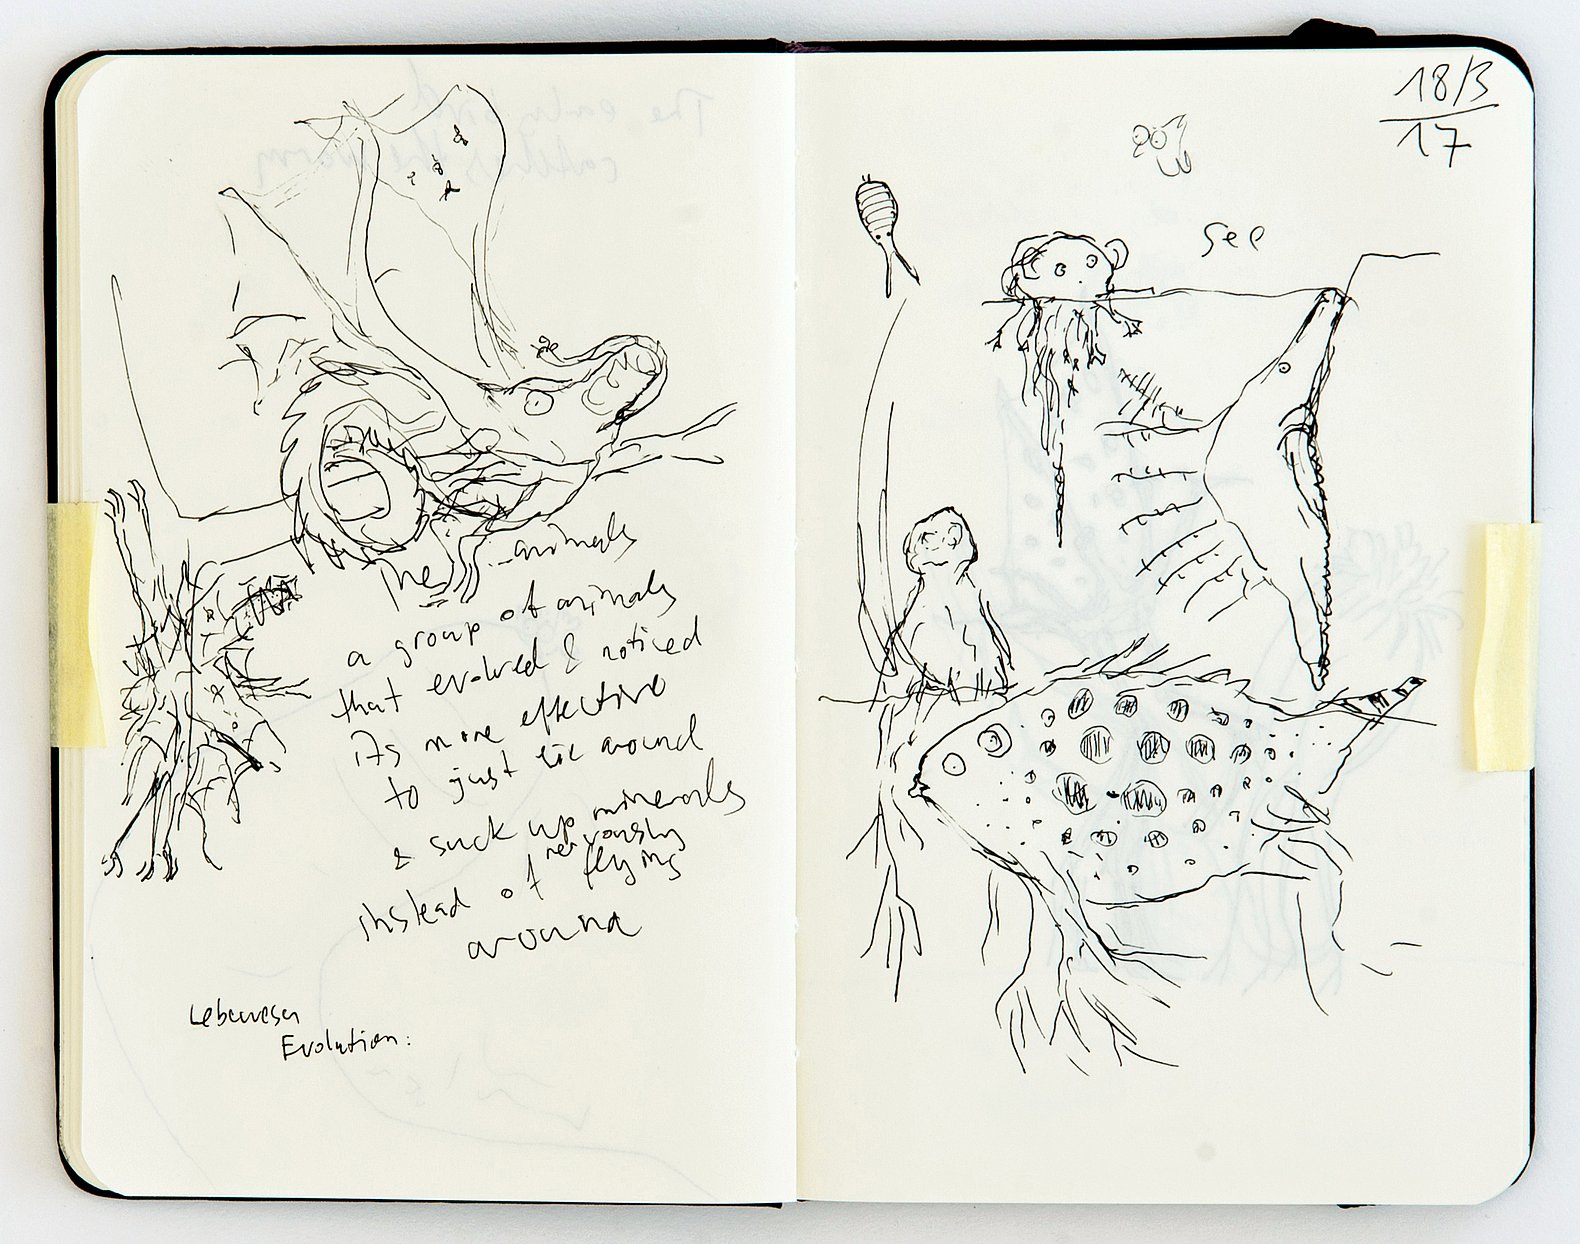 The animals
a group of animals
that evolved & noticed
its more effective
to just lie around
& suck up minerals
instead of nervously flying
around
Lebewesen
Evolution:
18/3
17
See